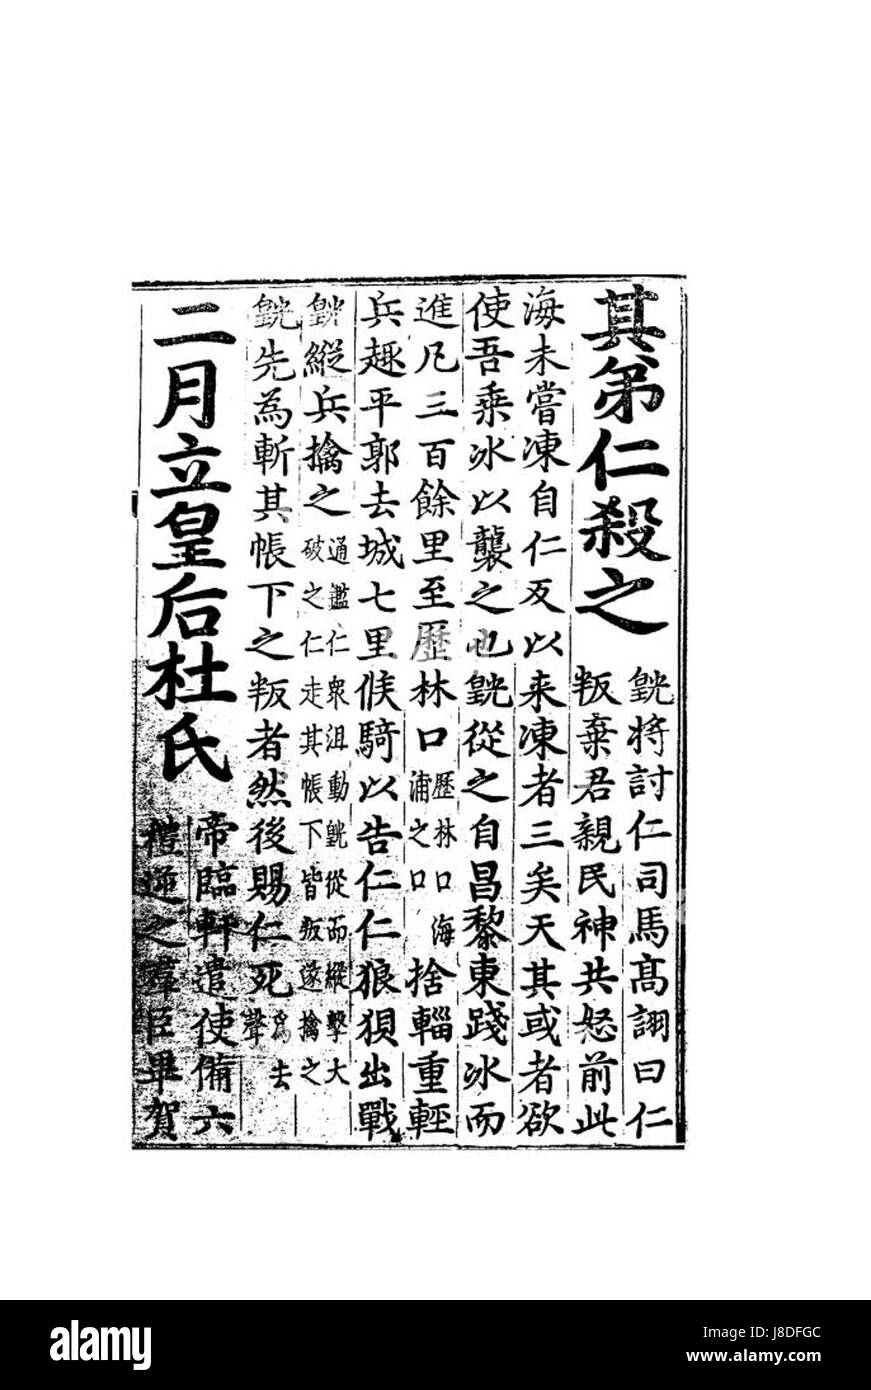 其弟仁殺之
皝將討仁司馬高詡曰仁
叛棄君親民神共怒前此
海未嘗凍自仁反以來凍者三矣天其或者欲
使吾乘冰以襲之也皝從之自昌黎東踐冰而
進凡三百餘里至歷林口
歷林口海
浦之口
捨輜重輕
兵趣平郭去城七里候騎以告仁仁狼狽出戰
皝縱兵擒之
通鑑仁衆沮動皝從而縱擊大
破之仁走其帳下皆叛遂擒之
皝先為斬其帳下之叛者然後賜仁死
為去
聲
二月立皇后杜氏
帝臨軒遣使備六
禮逆之羣臣畢賀
alamy
Image ID: J8DFGC
www.alamy.com